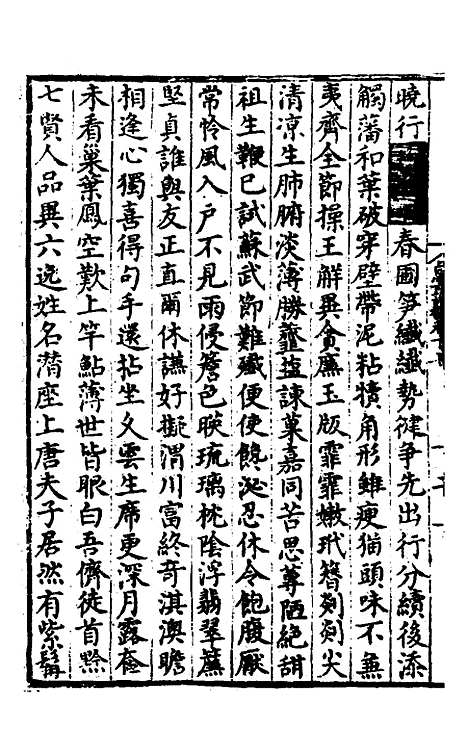 曉行春圃笋纖纖勢健爭先出行分續後添
觸藩和葉破穿壁帶泥粘犢角形雖瘦猫頭味不兼
夷齊全節操王解異貪廉玉版霏霏嫩玳簪剡剡尖
清凉生肺腑淡薄勝虀鹽諫菓嘉同苦思蓴陋絕甜
祖生鞭已試蘇武節難殲便使饞涎忍休令飽腹厭
常怜風入戶不見雨侵簷色映琉璃枕陰浮翡翠簾
堅貞誰與友正直爾休讌好擬渭川富終奇淇澳瞻
相逢心獨喜得句手還拈坐久雲生席更深月露奩
未看巢葉鳳空歎上竿鮎薄世皆眼白吾儕徒首黔
七賢人品異六逸姓名潛座上唐夫子居然有紫髯